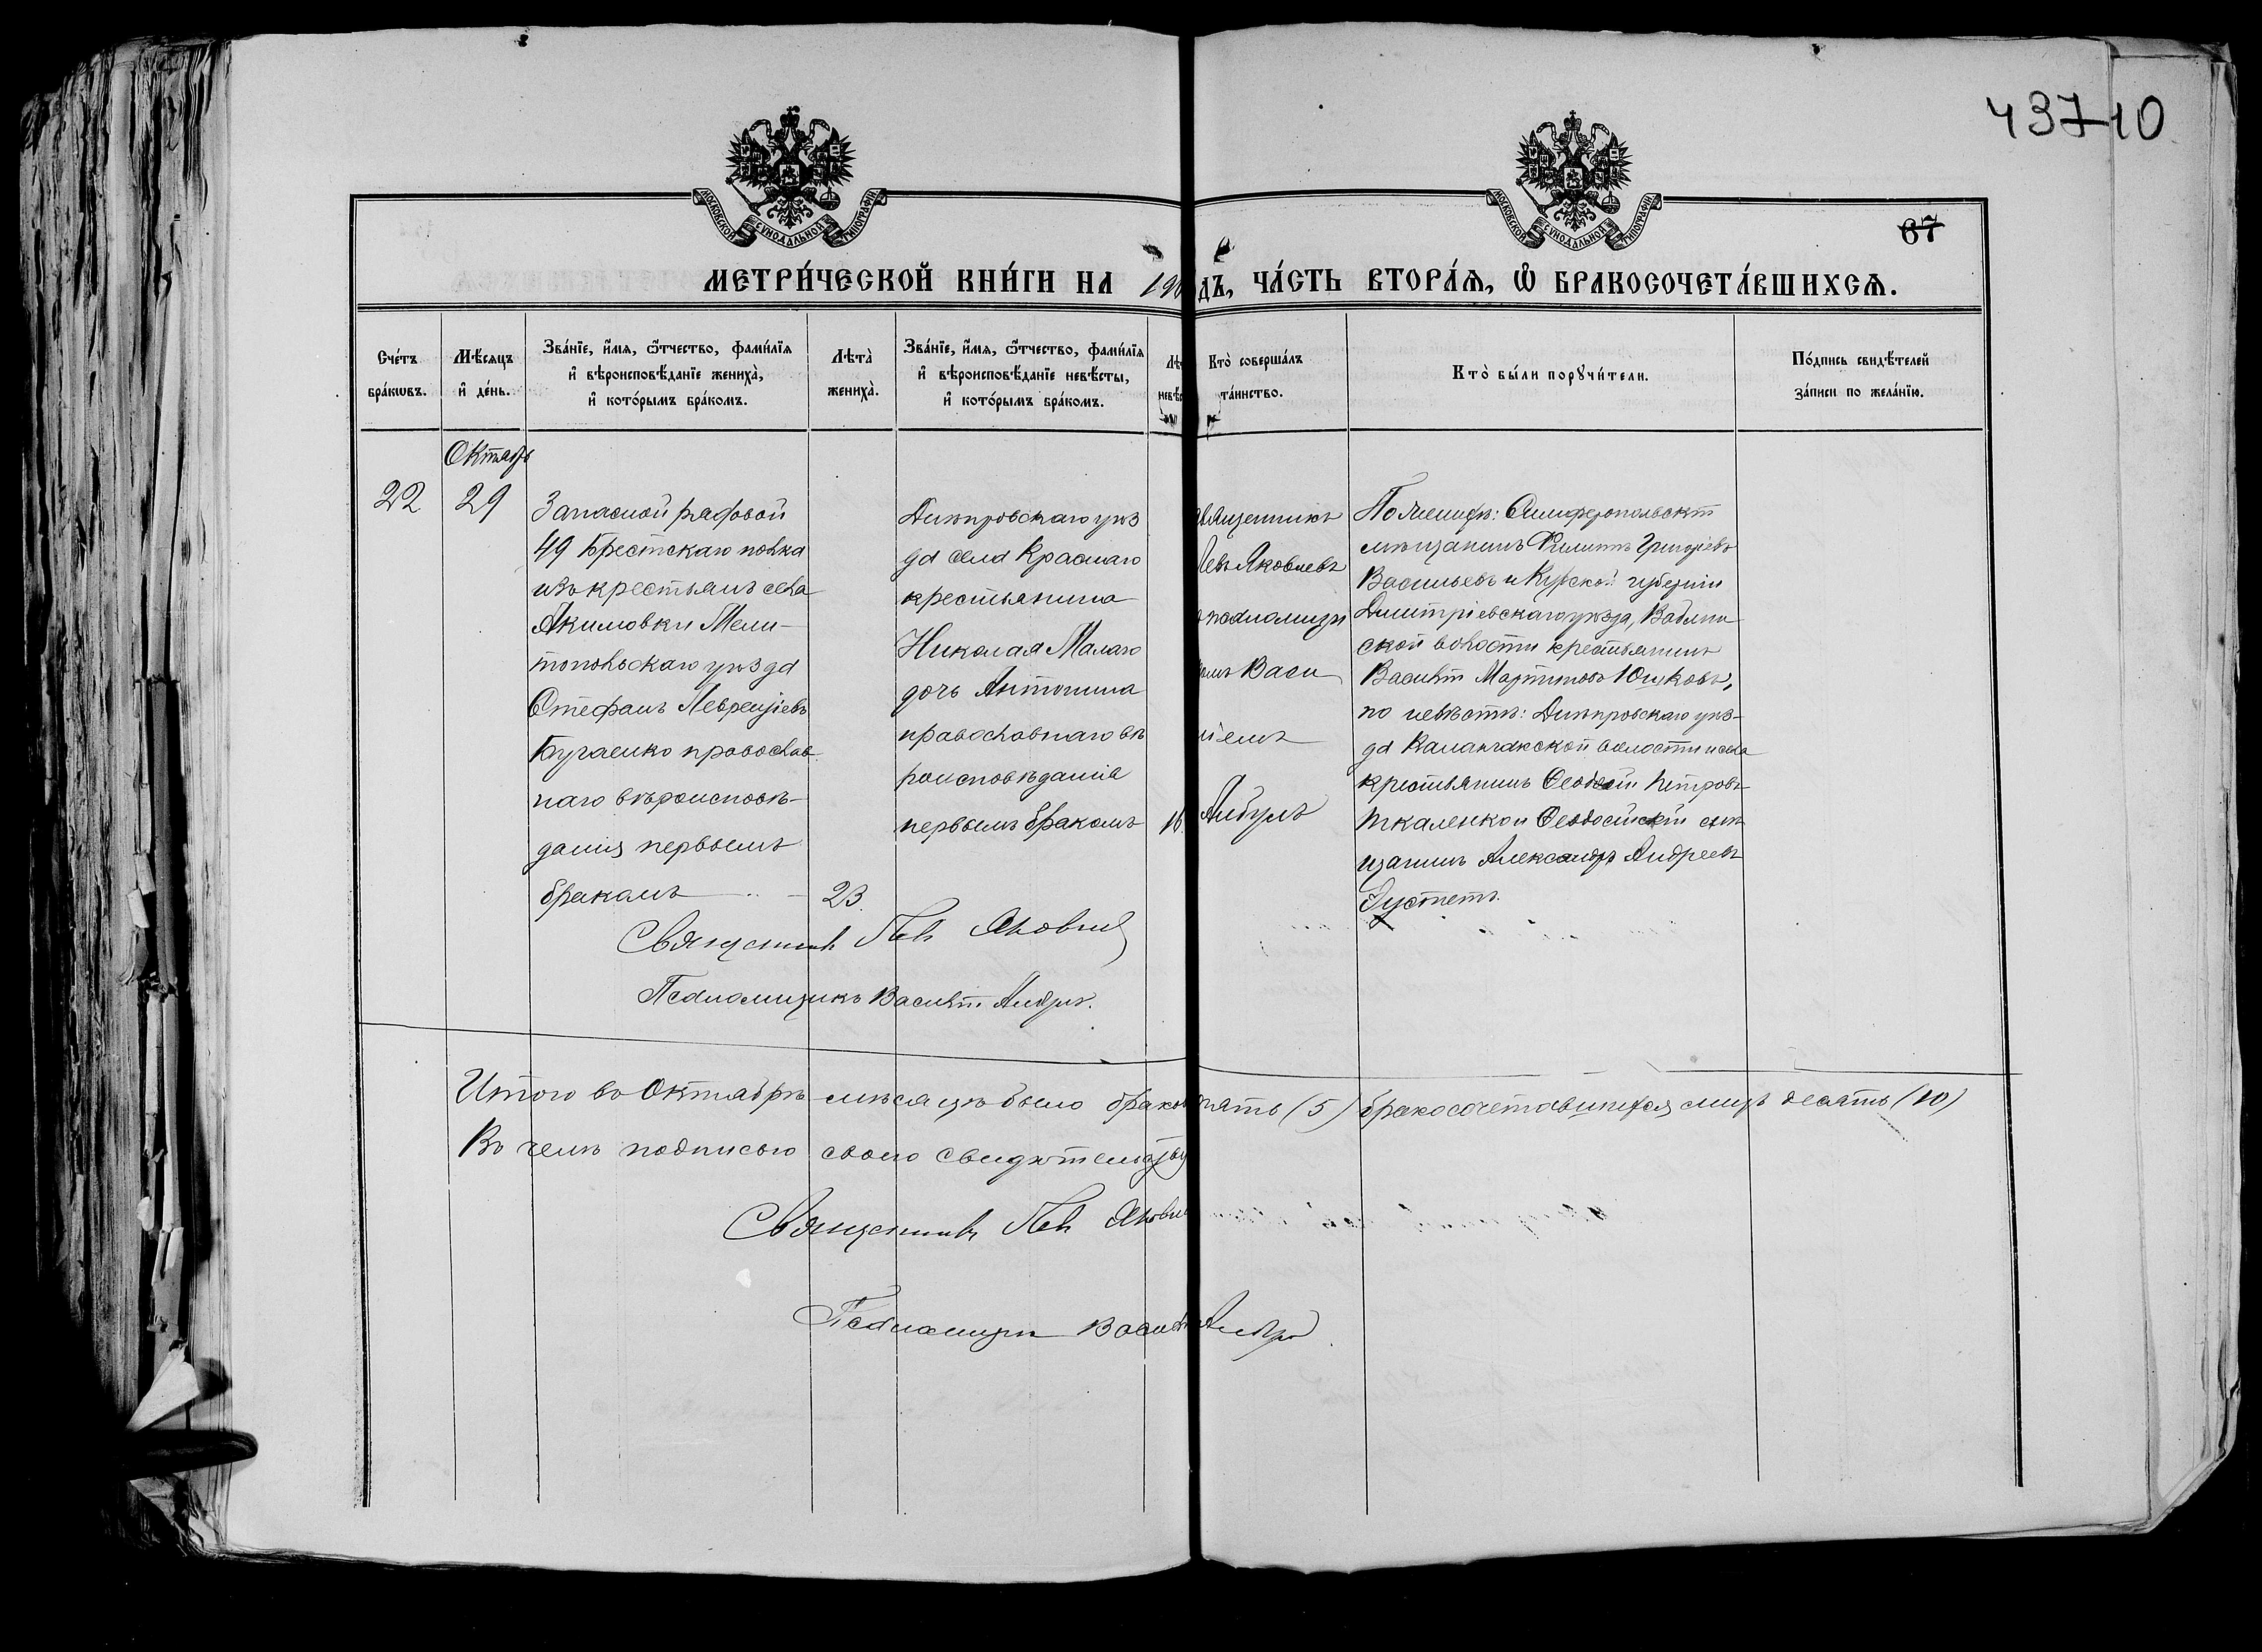 43710
МОСКОВСКОЙ СУНОДАЛЬНОЙ ТИПОГРАФІИ
МОСКОВСКОЙ СУНОДАЛЬНОЙ ТИПОГРАФІИ
67
МЕТРИ́ЧЕСКОЙ КНИ́ГИ НА 190
ДЪ, ЧА́СТЬ ВТОРА́Ѧ, Ѿ БРАКОСОЧЕТА́ВШИХСѦ.
Сче́тъ бра́кωвъ.
Мѣ́сяцъ и҆ де́нь.
Зва́нїе, и҆́мѧ, ѻ҆́тчество, фами́лїѧ и҆ вѣроисповѣ́данїе жениха̀, и҆ кото́рымъ бра́комъ.
Лѣта̀ жениха̀.
Зва́нїе, и҆́мѧ, ѻ҆́тчество, фами́лїѧ и҆ вѣроисповѣ́данїе невѣ́сты, и҆ кото́рымъ бра́комъ.
Кто̀ соверша́лъ та́инство.
Кто̀ бы́ли порꙋчи́тели.
По́дпись свидѣ́телей за́писи по жела́нїю.
Октяб
22
29
Запасной рядовой
49 Брестскаго полка
изъ крестьянъ села
Акимовки Мели-
топольскаго уѣзда
Стефанъ Лаврентіевъ
Бугаенко православ
наго вѣроисповѣ-
данія первымъ
бракомъ
23.
Днѣпровскаго уѣз
да села Краснаго
крестьянина
Николая Малаго
дочь Антонина
православнаго вѣ
роисповѣданія
первымъ бракомъ
16
вященникъ
Левъ Яковлевъ
псаломщи
комъ Васи
ліемъ
По женихѣ: Симферопольскій
мѣщанинъ Филиппъ Григорьевъ
Васильевъ и Курской губерніи
Димитріевскаго уѣзда,
ской волости крестьянинъ
Василій Мартиновъ Юшковъ,
по невѣстѣ: Днѣпровскаго уѣз-
да Каланчакской волости и села
крестьянинъ Феодосій Петровъ
Ткаленко и Феодосійскій мѣ
щанинъ Александръ Андреевъ
Священникъ Левъ Яковлев
Псаломщикъ Василій
Итого въ Октябрѣ мѣсяцѣ было браков пять (5) бракосочетавшихся лицъ десять (10)
Въ чемъ подписью своею свидѣтельству
Священникъ Левъ Яковле
Псаломщикъ Василій